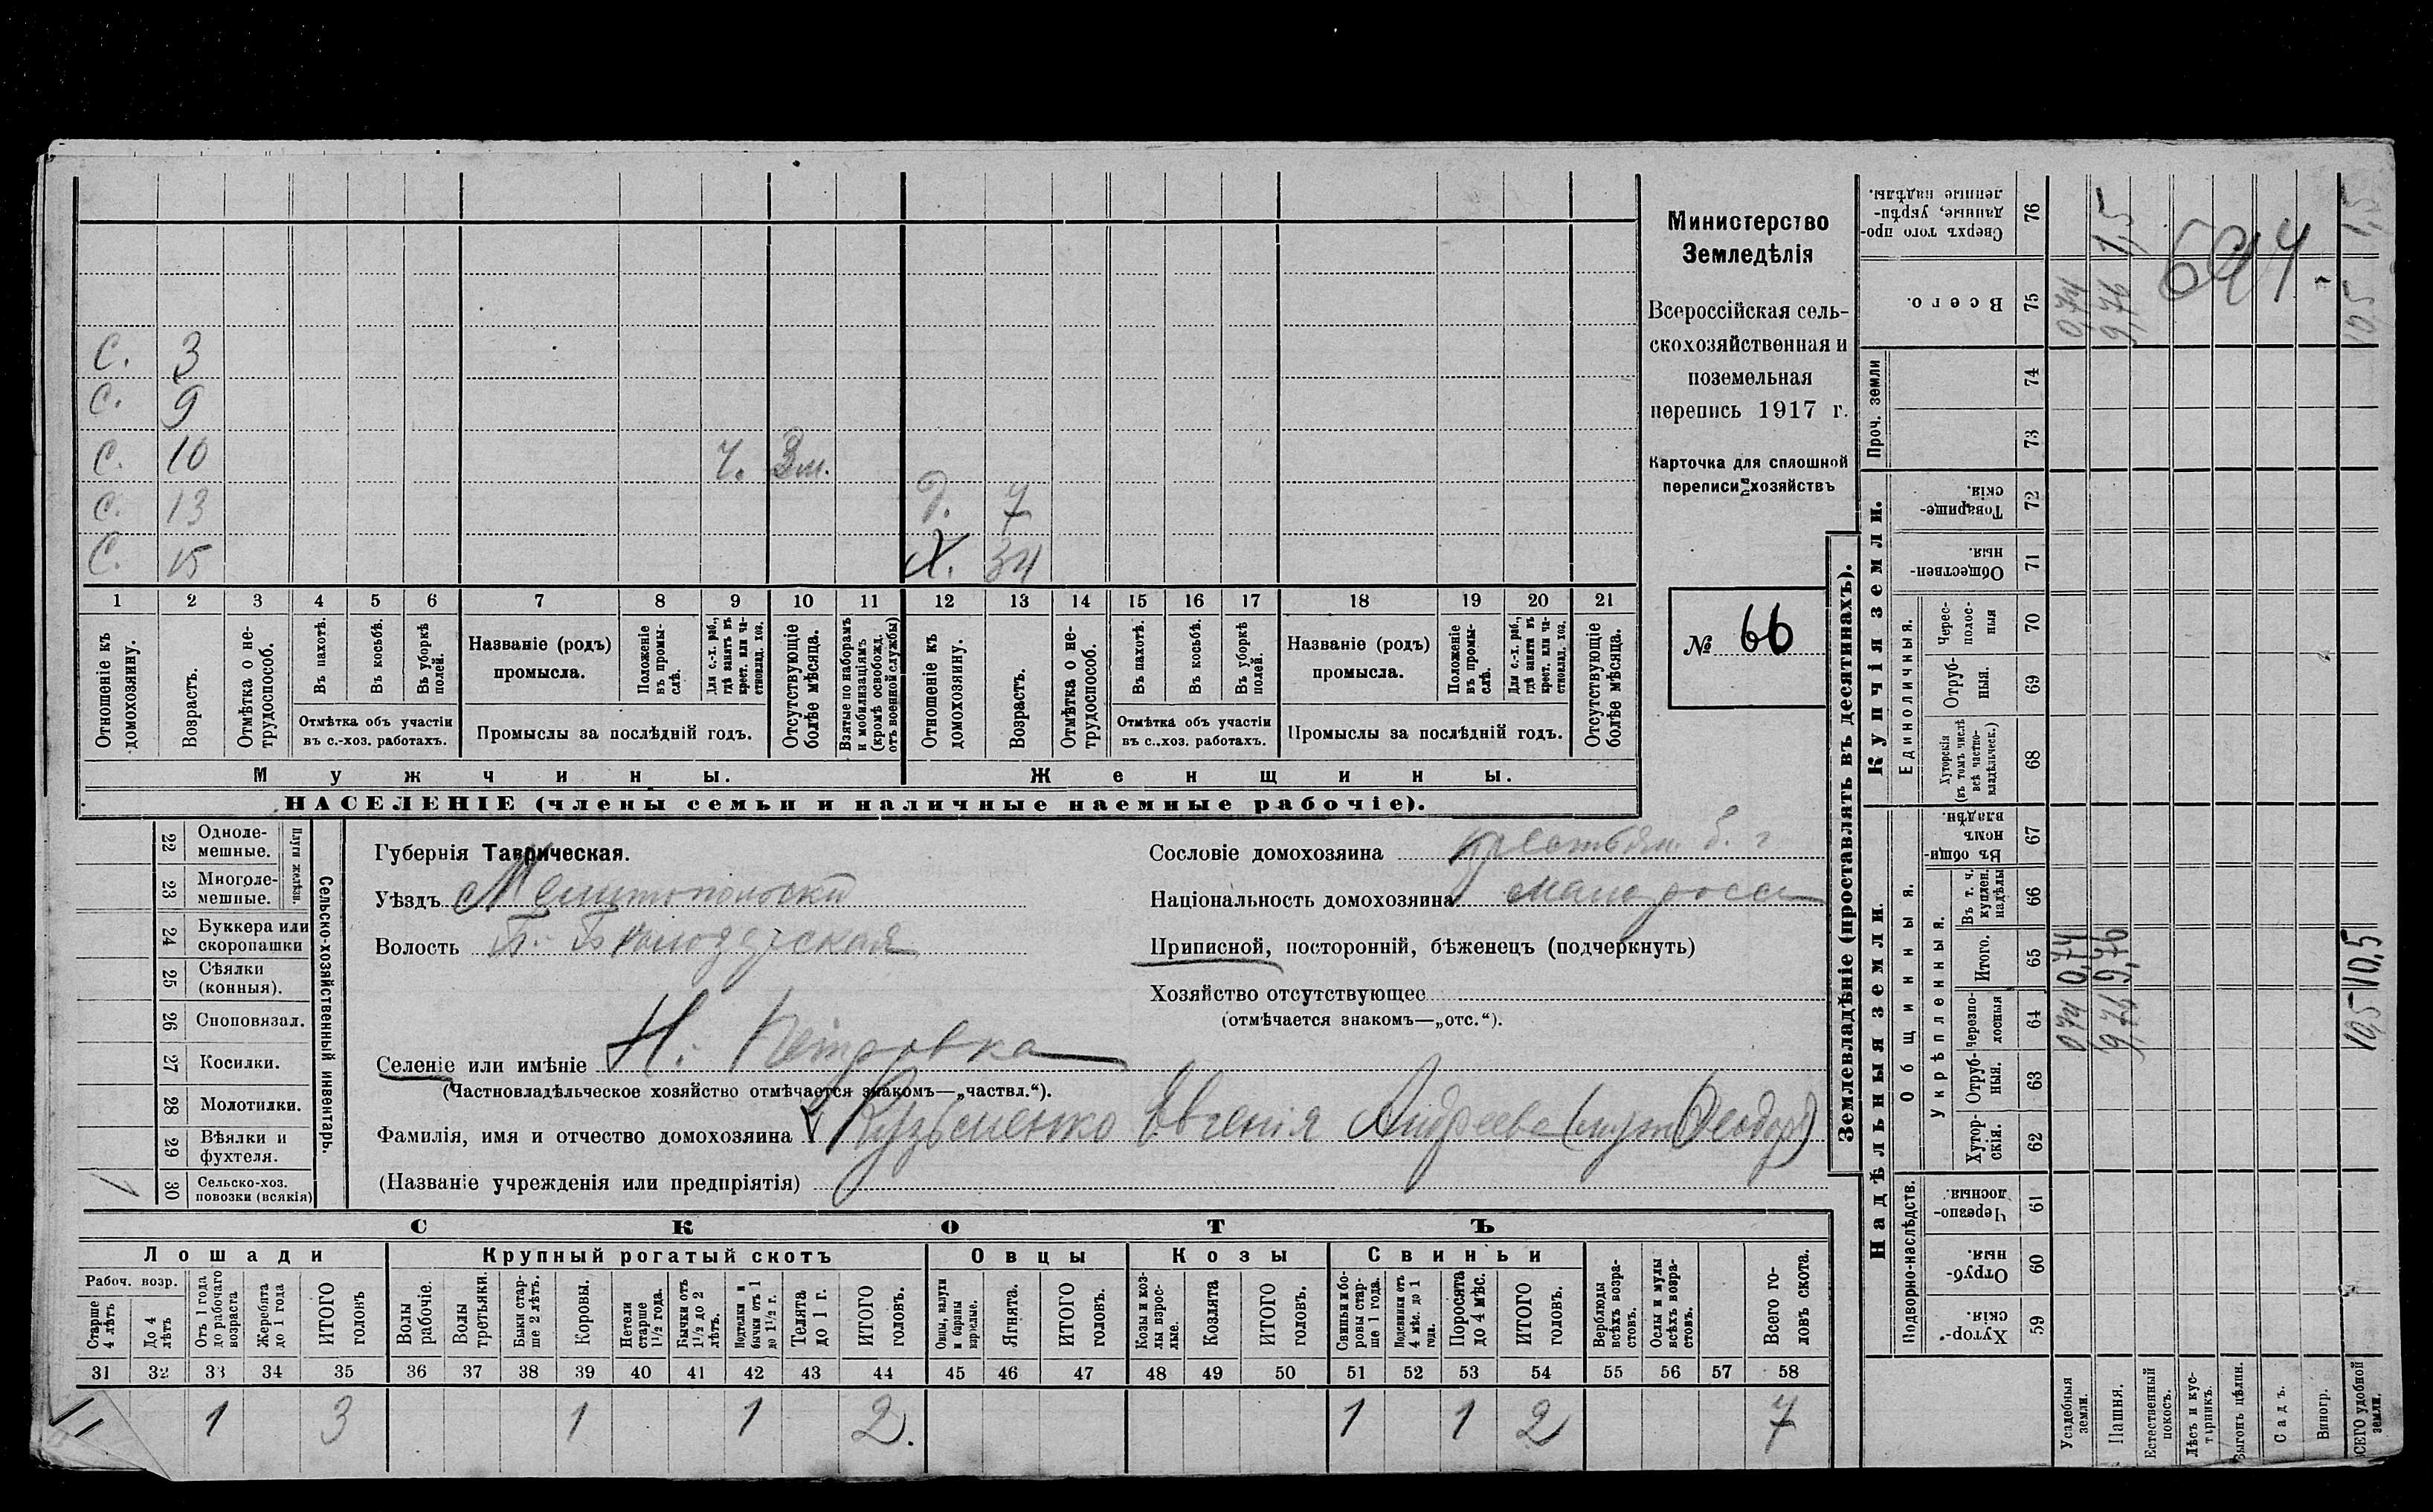 С. 3
С. 9
С. 10 Ч. 3 м.
С. 13 д. 7
С. 15 Х. 34
1 2 3 4 5 6 7 8 9 10 11 12 13 14 15 16 17 18 19 20 21
Отношеніе къ домохозяину.
Возрастъ.
Отмѣтка о нетрудоспособ.
Въ пахотѣ.
Въ косьбѣ.
Въ уборкѣ полей.
Отмѣтка объ участіи
въ с.-хоз. работахъ.
Названіе (родъ)
промысла.
Положеніе въ промыслѣ.
Для с.-х. раб., гдѣ занятъ въ крест. или частновлад. хоз.
Промыслы за послѣдній годъ.
Отсутствующіе болѣе мѣсяца.
Взятые по наборамъ и мобилизаціямъ (кромѣ освобожд. отъ военной службы)
Отношеніе къ домохозяину.
Возрастъ.
Отмѣтка о нетрудоспособ.
Въ пахотѣ.
Въ косьбѣ.
Въ уборкѣ полей.
Отмѣтка объ участіи
въ с.-хоз. работахъ.
Названіе (родъ)
промысла.
Положеніе въ промыслѣ.
Для с.-х. раб., гдѣ занята въ крест. или частновлад. хоз.
Промыслы за послѣдній годъ.
Отсутствующіе болѣе мѣсяца.
Мужчины. Женщины.
НАСЕЛЕНІЕ (члены семьи и наличные наемные рабочіе).
Министерство
Земледѣлія
Всероссійская сель-
скохозяйственная и
поземельная
перепись 1917 г.
Карточка для сплошной
переписи хозяйствъ
№ 66
Сельско-хозяйственный инвентарь.
Плуги желѣзн.
22 Одноле-
мешные.
23 Многоле-
мешные.
24 Буккера или
скоропашки
25 Сѣялки
(конныя).
26 Сноповязал.
27 Косилки.
28 Молотилки.
29 Вѣялки и
фухтеля.
30 Сельско-хоз.
повозки (всякія)
Губернія Таврическая.
Уѣздъ Мелитопольскій
Волость Б.-Бѣлозерская
Селеніе или имѣніе Н.-Петровка
(Частновладѣльческое хозяйство отмѣчается знакомъ—„частвл.“).
Фамилія, имя и отчество домохозяина Кузьменко Евгенія Андреева (муж Феодоръ)
(Названіе учрежденія или предпріятія)
Сословіе домохозяина крестьян.
Національность домохозяина малоросс
Приписной, посторонній, бѣженецъ (подчеркнуть)
Хозяйство отсутствующее
(отмѣчается знакомъ—„отс.“).
СКОТЪ
Лошади Крупный рогатый скотъ Овцы Козы Свиньи
Рабоч. возр.
Старше 4 лѣтъ
До 4 лѣтъ
Отъ 1 года до рабочаго возраста
Жеребята до 1 года
ИТОГО головъ
Волы рабочіе.
Волы третьяки.
Быки старше 2 лѣтъ.
Коровы.
Нетели старше 1½ года.
Бычки отъ 1½ до 2 лѣтъ.
Подтелки и бычки отъ 1 до 1½ г.
Телята до 1 г.
ИТОГО головъ.
Овцы, валухи и бараны взрослые.
Ягнята.
ИТОГО головъ.
Козы и козлы взрослые.
Козлята
ИТОГО головъ.
Свиньи и боровы старше 1 года.
Подсвинки отъ 4 мѣс. до 1 года.
Поросята до 4 мѣс.
ИТОГО головъ.
Верблюды всѣхъ возрастовъ.
Ослы и мулы всѣхъ возрастовъ.
Всего головъ скота.
31 32 33 34 35 36 37 38 39 40 41 42 43 44 45 46 47 48 49 50 51 52 53 54 55 56 57 58
1 3 1 1 2. 1 1 2 7
Землевладѣніе (проставлять въ десятинахъ).
Купчія земли.
Надѣльныя земли.
Сверхъ того проданные, укрѣпленные надѣлы. 76
Всего. 75
Проч. земли 74 73
Товарищескія. 72
Общественныя. 71
Единоличныя.
Чересполосныя 70
Отрубныя. 69
Хуторскія (въ томъ числѣ всѣ частновладѣльческ.) 68
Общинныя.
Въ общинномъ владѣн. 67
Укрѣпленныя.
Въ т. ч. куплен. надѣлы 66
Итого. 65
черезполосныя 64
Отрубныя. 63
Хуторскія. 62
Подворно-наслѣдств.
Черезполосныя. 61
Отрубныя. 60
Хуторскія. 59
Усадебныя земли. 0,74 0,74 0,74
Пашня. 9,76 9,76 9,76 1,5
Естественный покосъ.
Лѣсъ и кустарникъ.
Выгонъ цѣлин.
Садъ.
Виногр.
ВСЕГО удобной земли. 10,5 10,5 10,5 1,5
694